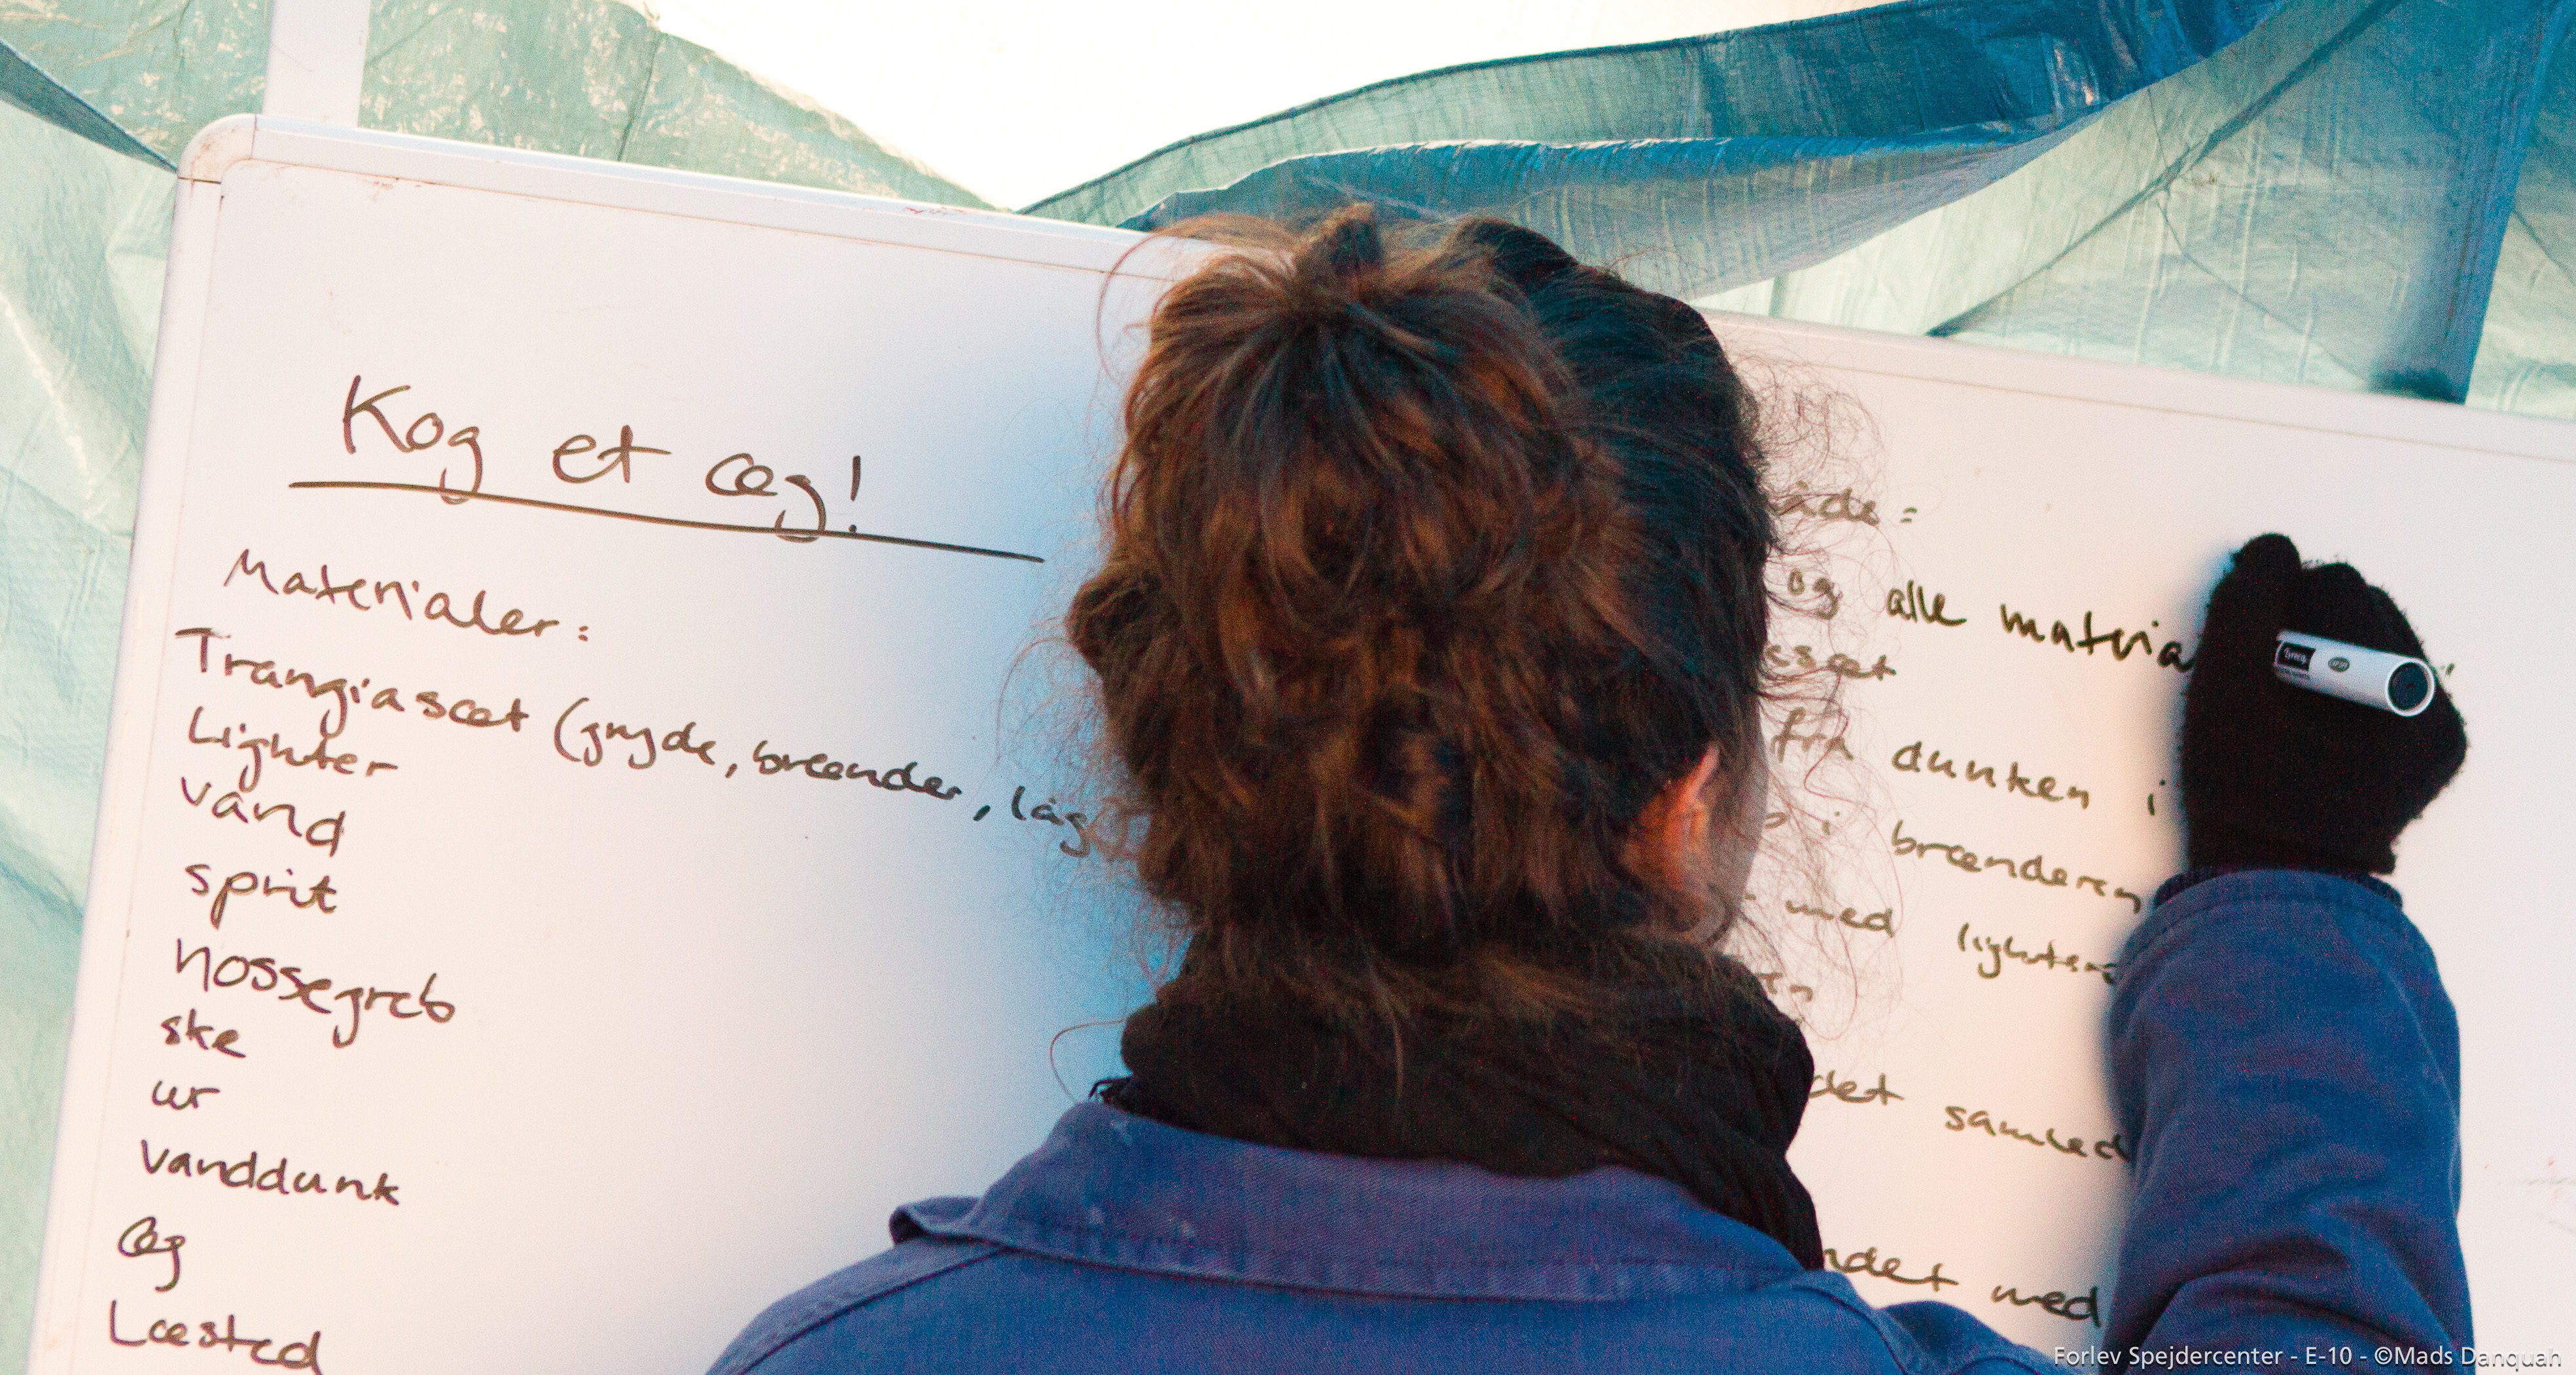 Kog et æg!
Materialer:
Trangiasæt (gryde, brænder, låg
Lighter
Vand
sprit
Nossegreb
ske
ur
Vanddunk
Æg
Læsted
åde:
og alle materia
sæt
fra dunken i
i brænderen
med lighteren
det samled
ndet med
Forlev Spejdercenter - E-10 - ©Mads Danquah